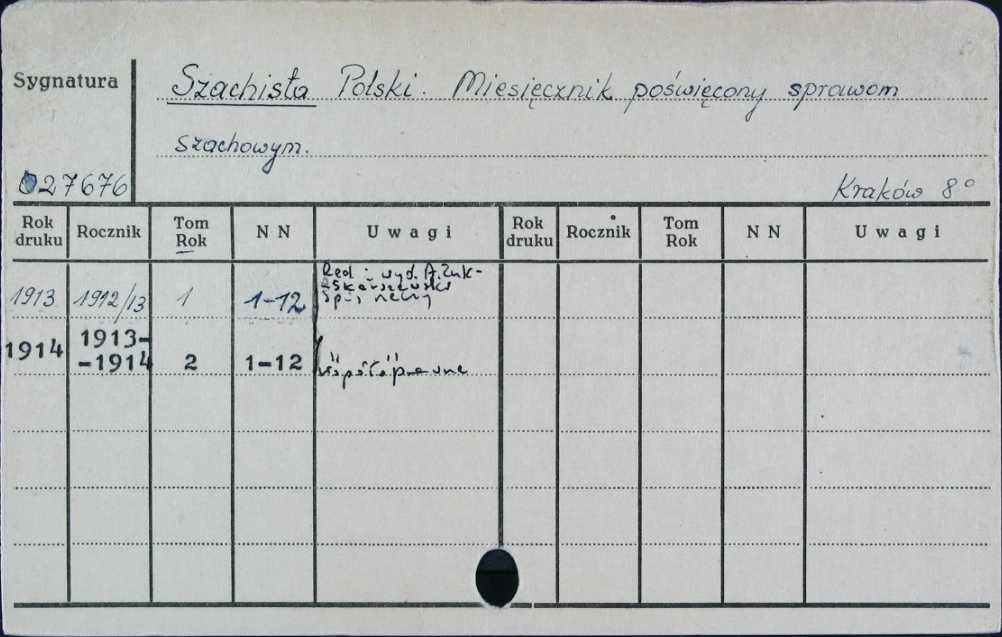 Sygnatura
Szachista Polski. Miesięcznik poświęcony sprawom
szachowym.
027676
Kraków 8°
Rok druku Rocznik Tom Rok NN Uwagi Rok druku Rocznik Tom Rok NN Uwagi
1913 1912/13 1 1-12 Red i wyd. A. Żuk-
Skarszewski
1914 1913-
-1914 2 1-12